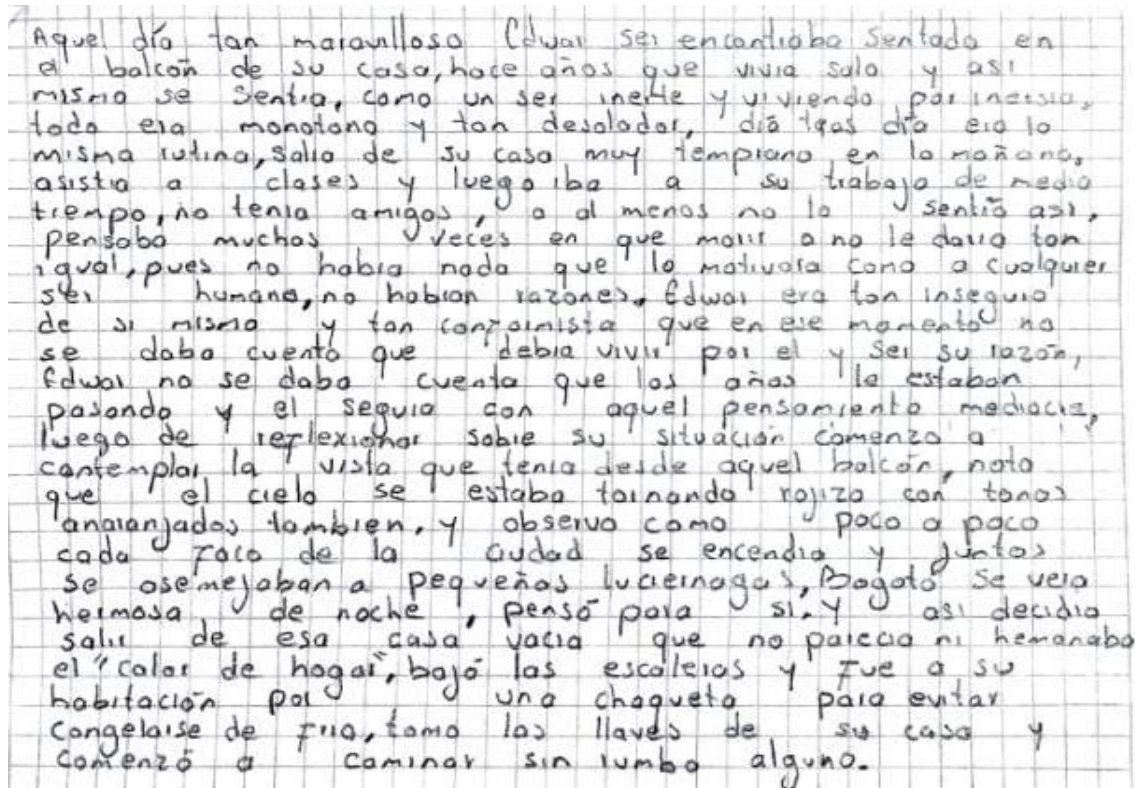 Aquel día tan maravilloso Edwar ser encontraba sentado en
el balcón de su casa, hace años que vivia solo y asi
mismo se sentia, como un ser inerte y viviendo por inersia,
todo era monotóno y tan desolador, día tras día era lo
misma rutina, salia de su casa muy temprano en la mañana,
asistia a clases y luego iba a su trabajo de medio
tiempo, no tenia amigos, o al menos no lo sentía asi,
pensaba muchas veces en que morir o no le daria tan
igual, pues no habia nada que lo motivara como a cualquier
ser humano, no habian razones. Edwar era tan inseguro
de si mismo y tan conformista que en ese momento no
se daba cuenta que debia vivir por el y ser su razón,
Edwar no se daba cuenta que los años le estaban
pasando y el seguia con aquel pensamiento mediocre,
luego de reflexionar sobre su situación comenzo a
contemplar la vista que tenia desde aquel balcón, noto
que el cielo se estaba tornando rojizo con tonos
anaranjados tambien, y observo como poco a poco
cada foco de la ciudad se encendia y juntos
se asemejaban a pequeños luciernagas, Bogotá se veia
hermosa de noche, pensó para si. y asi decidio
salir de esa casa vacia que no parecia ni hemanaba
el "calor de hogar", bajó las escaleras y fue a su
habitación por una chaqueta para evitar
congelarse de frio, tomo las llaves de su casa y
comenzó a caminar sin rumbo alguno.